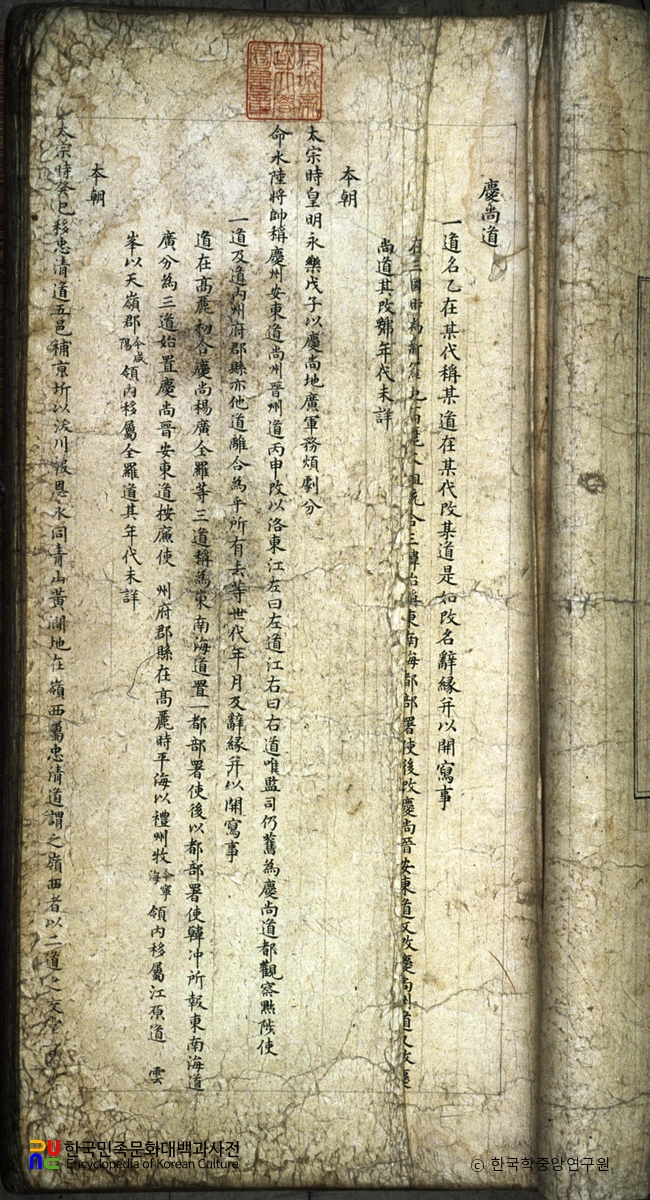 慶尚道
一道名乙在某代稱某道在某代改某道是如改名辭緣幷以開寫事
右三國時爲新羅 統合三韓始稱東南海都部署使後改慶尚晉安東道又改慶尚州道又改慶
尚道其改號年代未詳
本朝
太宗時皇明永樂戊子以慶尚地廣軍務煩劇分
命水陸將帥稱慶州安東道尚州晉州道丙申改以洛東江左曰左道江右曰右道唯監司仍舊爲慶尚道都觀察黜陟使
一道及道內州府郡縣亦他道離合爲乎所有去等世代年月及辭緣幷以開寫事
道在高麗初合慶尚楊廣全羅等三道稱爲東南海道置一都部署使後以都部署使韓冲所報東南海道
廣分爲三道始置慶尚晉安東道按廉使 州府郡縣在高麗時平海以禮州牧今寧海領內移屬江原道 雲
峯以天嶺郡今咸陽領內移屬全羅道其年代未詳
本朝
太宗時癸巳移忠清道五邑補京圻以沃川報恩永同青山黃澗地在嶺西屬忠清道謂之嶺西者以二道之交
한국민족문화대백과사전
Encyclopedia of Korean Culture
ⓒ 한국학중앙연구원